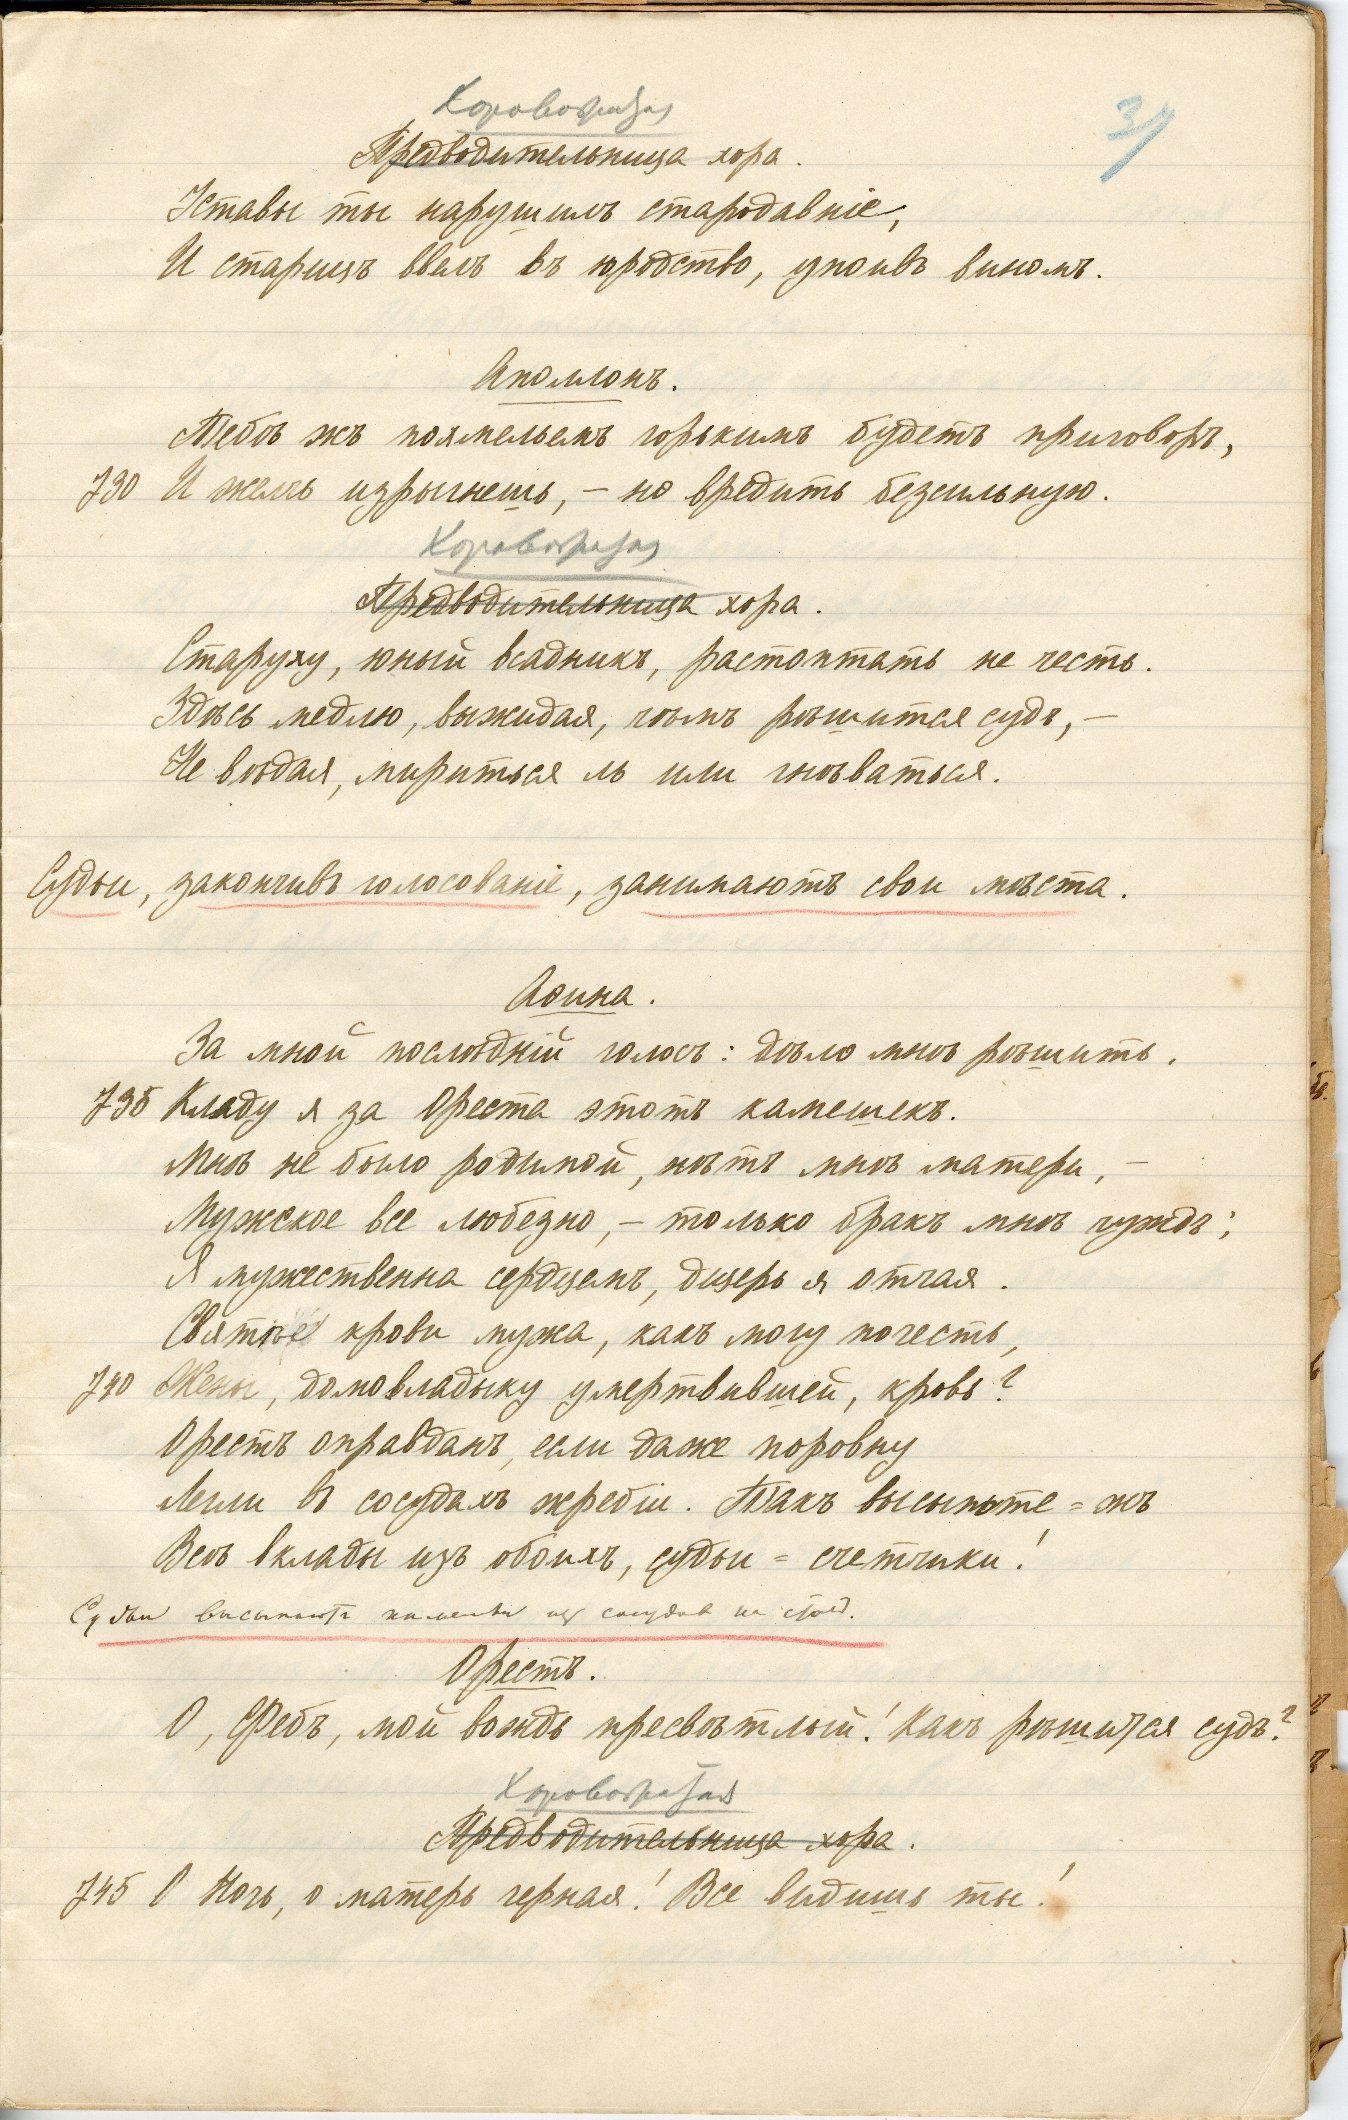 Хоровожатая
37
Предводительница хора.
Уставы ты нарушилъ стародавніе,
И старицъ ввелъ въ юродство, упоивъ виномъ.
Аполлонъ.
Тебѣ жъ похмельемъ горькимъ будетъ приговоръ,
730 И желчь изрыгнешь, – но вредить безсильную.
Хоровожатая
Предводительница хора.
Старуху, юный всадникъ, растоптать не честь.
Здѣсь медлю, выжидая, чѣмъ рѣшится судъ, –
Не вѣдая, мириться ль или гнѣваться.
Судьи, закончивъ голосованіе, занимаютъ свои мѣста.
Аѳина.
За мной послѣдній голосъ: дѣло мнѣ рѣшить.
735 Кладу я за Ореста этотъ камешекъ.
Мнѣ не было родимой, нѣтъ мнѣ матери, –
Мужское все любезно, – только бракъ мнѣ чуждъ;
Я мужественна сердцемъ, дщерь я отчая.
Святѣе крови мужа, какъ могу почесть,
740 Жены, домовладыку умертвившей, кровь?
Орестъ оправданъ, если даже поровну
Легли въ сосудахъ жребіи. Такъ высыпьте=жъ
Всѣ вклады изъ обоихъ, судьи=счетчики!
Судьи высыпаютъ камешки изъ сосудовъ на столъ.
Орестъ.
О, Фебъ, мой вождь пресвѣтлый! Какъ рѣшится судъ?
Хоровожатая
Предводительница хора.
745 О Ночь, о матерь черная! Все видишь ты!